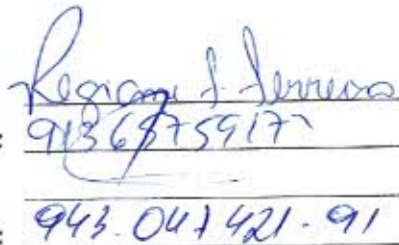 Regiane S. Ferreira
: 91368759177
: 943.047421-91